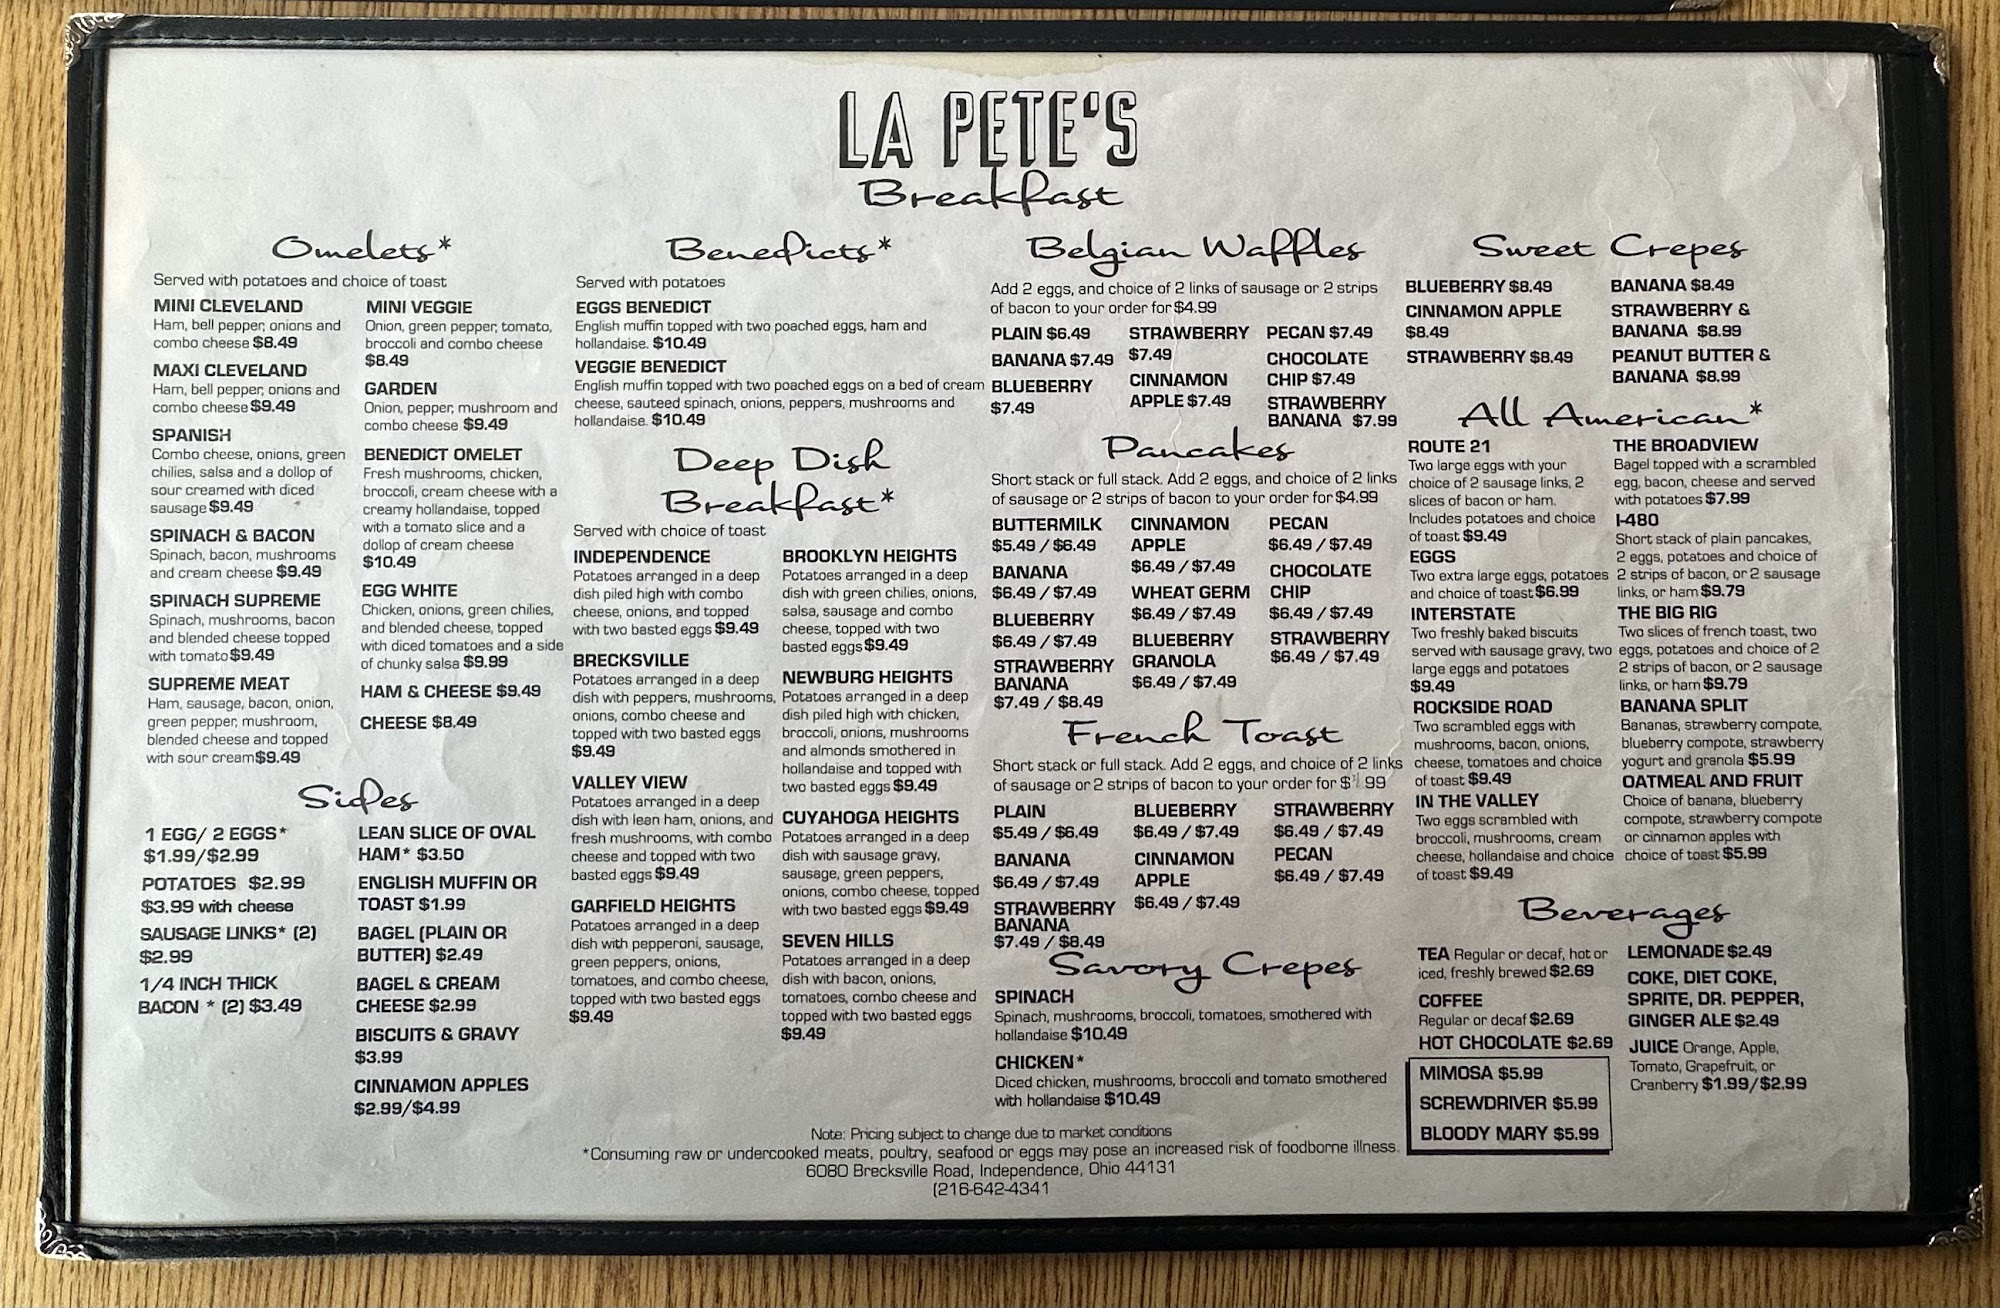 LA PETE'S
Breakfast
Omelets*
Served with potatoes and choice of toast
MINI CLEVELAND
Ham, bell pepper, onions and
combo cheese $8.49
MAXI CLEVELAND
Ham, bell pepper, onions and
combo cheese $9.49
SPANISH
Combo cheese, onions, green
chilies, salsa and a dollop of
sour creamed with diced
sausage $9.49
SPINACH & BACON
Spinach, bacon, mushrooms
and cream cheese $9.49
SPINACH SUPREME
Spinach, mushrooms, bacon
and blended cheese topped
with tomato $9.49
SUPREME MEAT
Ham, sausage, bacon, onion,
green pepper, mushroom,
blended cheese and topped
with sour cream $9.49
MINI VEGGIE
Onion, green pepper, tomato,
broccoli and combo cheese
$8.49
GARDEN
Onion, pepper, mushroom and
combo cheese $9.49
BENEDICT OMELET
Fresh mushrooms, chicken,
broccoli, cream cheese with a
creamy hollandaise, topped
with a tomato slice and a
dollop of cream cheese
$10.49
EGG WHITE
Chicken, onions, green chilies,
and blended cheese, topped
with diced tomatoes and a side
of chunky salsa $9.99
HAM & CHEESE $9.49
CHEESE $8.49
Sides
1 EGG/ 2 EGGS*
$1.99/$2.99
POTATOES $2.99
$3.99 with cheese
SAUSAGE LINKS* (2)
$2.99
1/4 INCH THICK
BACON * (2) $3.49
LEAN SLICE OF OVAL
HAM* $3.50
ENGLISH MUFFIN OR
TOAST $1.99
BAGEL (PLAIN OR
BUTTER) $2.49
BAGEL & CREAM
CHEESE $2.99
BISCUITS & GRAVY
$3.99
CINNAMON APPLES
$2.99/$4.99
Benedicts*
Served with potatoes
EGGS BENEDICT
English muffin topped with two poached eggs, ham and
hollandaise. $10.49
VEGGIE BENEDICT
English muffin topped with two poached eggs on a bed of cream
cheese, sauteed spinach, onions, peppers, mushrooms and
hollandaise. $10.49
Deep Dish
Breakfast*
Served with choice of toast
INDEPENDENCE
Potatoes arranged in a deep
dish piled high with combo
cheese, onions, and topped
with two basted eggs $9.49
BRECKSVILLE
Potatoes arranged in a deep
dish with peppers, mushrooms,
onions, combo cheese and
topped with two basted eggs
$9.49
VALLEY VIEW
Potatoes arranged in a deep
dish with lean ham, onions, and
fresh mushrooms, with combo
cheese and topped with two
basted eggs $9.49
GARFIELD HEIGHTS
Potatoes arranged in a deep
dish with pepperoni, sausage,
green peppers, onions,
tomatoes, and combo cheese,
topped with two basted eggs
$9.49
BROOKLYN HEIGHTS
Potatoes arranged in a deep
dish with green chilies, onions,
salsa, sausage and combo
cheese, topped with two
basted eggs $9.49
NEWBURG HEIGHTS
Potatoes arranged in a deep
dish piled high with chicken,
broccoli, onions, mushrooms
and almonds smothered in
hollandaise and topped with
two basted eggs $9.49
CUYAHOGA HEIGHTS
Potatoes arranged in a deep
dish with sausage gravy,
sausage, green peppers,
onions, combo cheese, topped
with two basted eggs $9.49
SEVEN HILLS
Potatoes arranged in a deep
dish with bacon, onions,
tomatoes, combo cheese and
topped with two basted eggs
$9.49
Belgian Waffles
Add 2 eggs, and choice of 2 links of sausage or 2 strips
of bacon to your order for $4.99
PLAIN $6.49
BANANA $7.49
BLUEBERRY
$7.49
STRAWBERRY
$7.49
CINNAMON
APPLE $7.49
PECAN $7.49
CHOCOLATE
CHIP $7.49
STRAWBERRY
BANANA $7.99
Pancakes
Short stack or full stack. Add 2 eggs, and choice of 2 links
of sausage or 2 strips of bacon to your order for $4.99
BUTTERMILK
$5.49 / $6.49
BANANA
$6.49 / $7.49
BLUEBERRY
$6.49 / $7.49
STRAWBERRY
BANANA
$7.49 / $8.49
CINNAMON
APPLE
$6.49 / $7.49
WHEAT GERM
$6.49 / $7.49
BLUEBERRY
GRANOLA
$6.49 / $7.49
PECAN
$6.49 / $7.49
CHOCOLATE
CHIP
$6.49 / $7.49
STRAWBERRY
$6.49 / $7.49
French Toast
Short stack or full stack. Add 2 eggs, and choice of 2 links
of sausage or 2 strips of bacon to your order for
PLAIN
$5.49 / $6.49
BANANA
$6.49 / $7.49
STRAWBERRY
BANANA
$7.49 / $8.49
BLUEBERRY
$6.49 / $7.49
CINNAMON
APPLE
$6.49 / $7.49
STRAWBERRY
$6.49 / $7.49
PECAN
$6.49 / $7.49
Savory Crepes
SPINACH
Spinach, mushrooms, broccoli, tomatoes, smothered with
hollandaise $10.49
CHICKEN*
Diced chicken, mushrooms, broccoli and tomato smothered
with hollandaise $10.49
Sweet Crepes
BLUEBERRY $8.49
CINNAMON APPLE
$8.49
STRAWBERRY $8.49
BANANA $8.49
STRAWBERRY &
BANANA $8.99
PEANUT BUTTER &
BANANA $8.99
All American*
ROUTE 21
Two large eggs with your
choice of 2 sausage links, 2
slices of bacon or ham.
Includes potatoes and choice
of toast $9.49
EGGS
Two extra large eggs, potatoes
and choice of toast $6.99
INTERSTATE
Two freshly baked biscuits
served with sausage gravy, two
large eggs and potatoes
$9.49
ROCKSIDE ROAD
Two scrambled eggs with
mushrooms, bacon, onions,
cheese, tomatoes and choice
of toast $9.49
IN THE VALLEY
Two eggs scrambled with
broccoli, mushrooms, cream
cheese, hollandaise and choice
of toast $9.49
THE BROADVIEW
Bagel topped with a scrambled
egg, bacon, cheese and served
with potatoes $7.99
I-480
Short stack of plain pancakes,
2 eggs, potatoes and choice of
2 strips of bacon, or 2 sausage
links, or ham $9.79
THE BIG RIG
Two slices of french toast, two
eggs, potatoes and choice of 2
2 strips of bacon, or 2 sausage
links, or ham $9.79
BANANA SPLIT
Bananas, strawberry compote,
blueberry compote, strawberry
yogurt and granola $5.99
OATMEAL AND FRUIT
Choice of banana, blueberry
compote, strawberry compote
or cinnamon apples with
choice of toast $5.99
Beverages
TEA Regular or decaf, hot or
iced, freshly brewed $2.69
COFFEE
Regular or decaf $2.69
HOT CHOCOLATE $2.69
MIMOSA $5.99
SCREWDRIVER $5.99
BLOODY MARY $5.99
LEMONADE $2.49
COKE, DIET COKE,
SPRITE, DR. PEPPER,
GINGER ALE $2.49
JUICE Orange, Apple,
Tomato, Grapefruit, or
Cranberry $1.99/$2.99
Note: Pricing subject to change due to market conditions
*Consuming raw or undercooked meats, poultry, seafood or eggs may pose an increased risk of foodborne illness.
6080 Brecksville Road, Independence, Ohio 44131
(216-642-4341